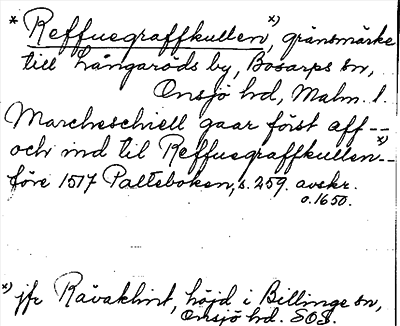 * Reffuegraffkullen,ˣ⁾ gränsmärke
till Långaröds by, Bosarps sn,
Onsjö hd, Malm. l.
Marcheschiell gaar först aff --
och ind til Reffuegraffkullenˣ⁾ --
före 1517 Palteboken, s. 259. avskr.
o. 1650.
ˣ⁾ jfr Rävaklint, höjd i Billinge sn,
Onsjö hd. SOS.